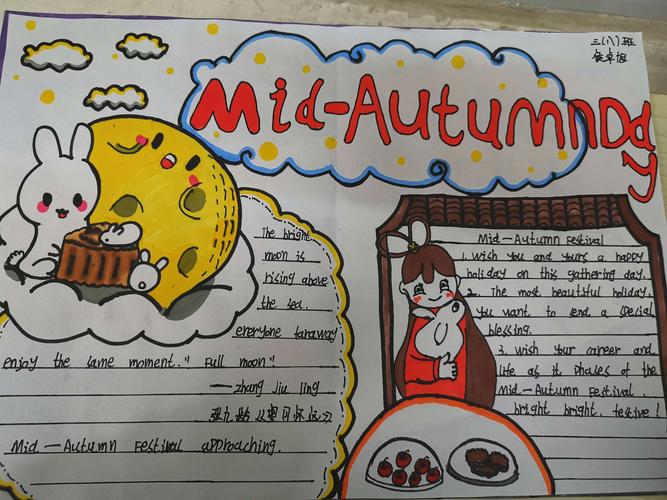 三(八)班
Mid-Autumn Day
The bright
moon is
rising above
the sea.
everyone faraway
enjoy the same moment." Full moon"!
—zhang jiu ling
张九龄《望月怀远》
Mid-Autumn Festival approaching.
Mid-Autumn Festival
1. wish You and yours a happy
holiday on this gathering day.
2. The most beautiful holiday.
You want to send a special
blessing.
3. wish Your career and
life as it phases of the
Mid-Autumn Festival,
bright bright, festive!